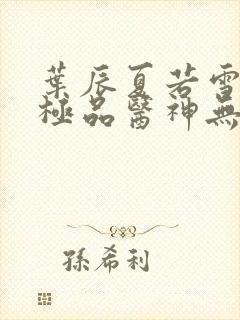 葉辰夏若雪
極品醫神無
孫希利